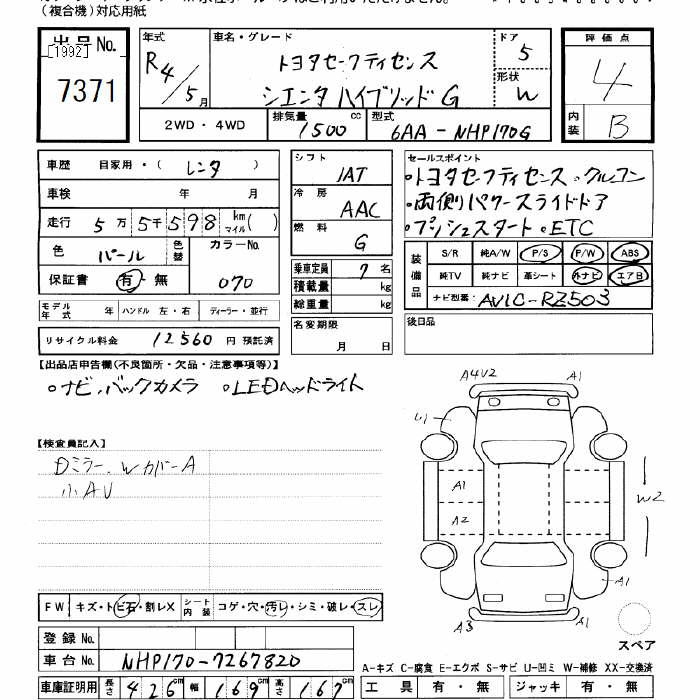 (複合機)対応用紙
出品No.
[1992]
7371
年式
R4/5月
車名・グレード
トヨタセーフティセンス
シエンタ ハイブリッドG
ドア
5
形状
W
評価点
4
内装
B
2WD・4WD
排気量 1500 cc
型式 6AA-NHP170G
車歴 自家用・(レンタ)
車検 年 月
走行 5万5千598 km マイル( )
色 パール 色替
カラーNo. 070
保証書 有・無
モデル年式 年 ハンドル 左・右 ディーラー・並行
リサイクル料金 12560 円 預託済
シフト IAT
冷房 AAC
燃料 G
乗車定員 7 名
積載量 kg
総重量 kg
名変期限
月 日
セールスポイント
・トヨタセーフティセンス ・クルコン
・両側パワースライドドア
・プッシュスタート ・ETC
装備品
S/R 純A/W P/S P/W ABS
純TV 純ナビ 革シート 外ナビ エアB
ナビ型番: AVIC-RZ503
後日品
【出品店申告欄(不良箇所・欠品・注意事項等)】
・ナビ,バックカメラ ・LEDヘッドライト
【検査員記入】
Dミラー、Wカバー A
小AU
A4U2 A1
U1
A1
A2
W2
A1
A3 A1
スペア
FW キズ・トビ石・割レX シート内装 コゲ・穴・汚レ・シミ・破レ・スレ
登録No.
車台No. NHP170-7267820
車庫証明用 長さ 426cm 幅 169cm 高さ 167cm
A-キズ C-腐食 E-エクボ S-サビ U-凹ミ W-補修 XX-交換済
工具 有・無 ジャッキ 有・無